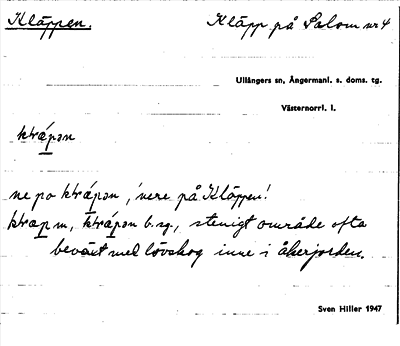 Kläppen.
Kläpp på Salom nr 4
Ullångers sn, Ångermanl. s. doms. tg.
Västernorrl. l.
ne po , 'nere på Kläppen!
m, b. sg., stenigt område ofta
beväxt med lövskog inne i åkerjorden.
Sven Hiller 1947